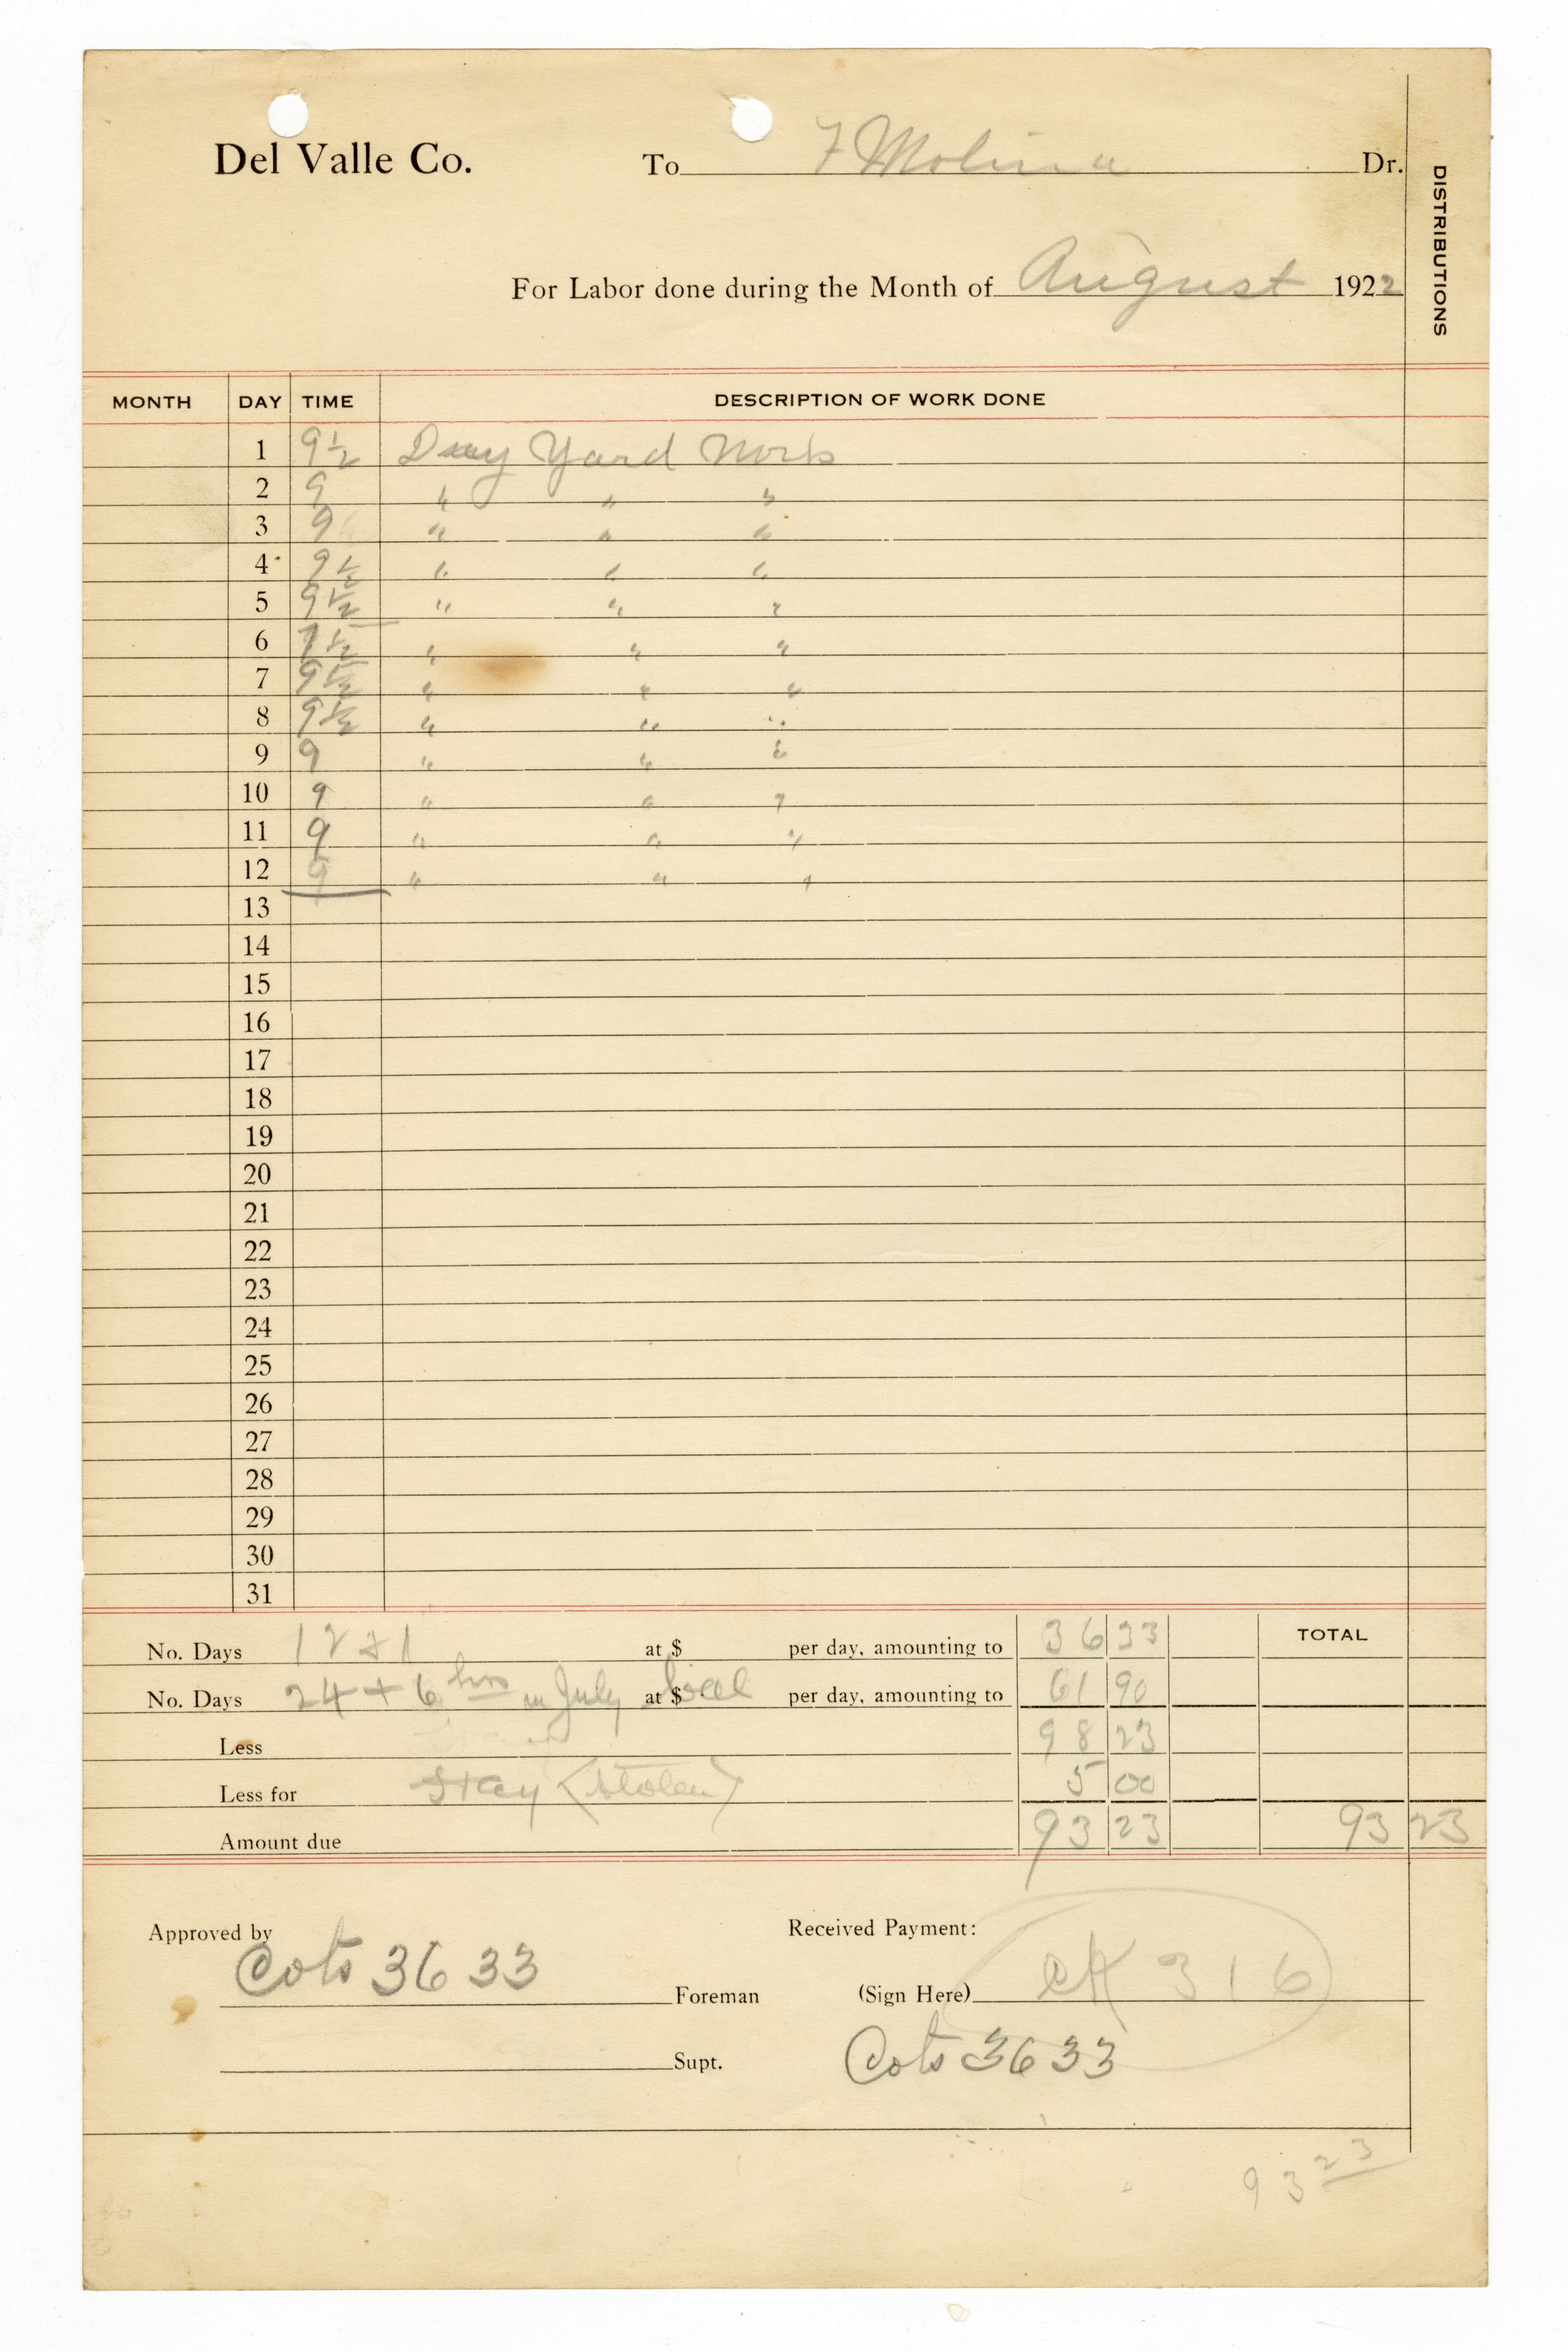 Del Valle Co. To F Molina Dr.
DISTRIBUTIONS
For Labor done during the Month of August 1922
MONTH DAY TIME DESCRIPTION OF WORK DONE
1 9½ Dray Yard Work
2 9 " " "
3 9 " " "
4 9½ " " "
5 9½ " " "
6 7½ " " "
7 9½ " " "
8 9½ " " "
9 9 " " "
10 9 " " "
11 9 " " "
12 9 " " "
13
14
15
16
17
18
19
20
21
22
23
24
25
26
27
28
29
30
31
No. Days 12+1 at $ per day, amounting to 36 33 TOTAL
No. Days 24+6 hrs in July at $ per day, amounting to 61 90
Less 98 23
Less for Hay (Stolen) 5 00
Amount due 93 23 93 23
Approved by Received Payment:
Cots 36 33 Foreman (Sign Here) CK 316
Supt. Cots 36 33
93 23